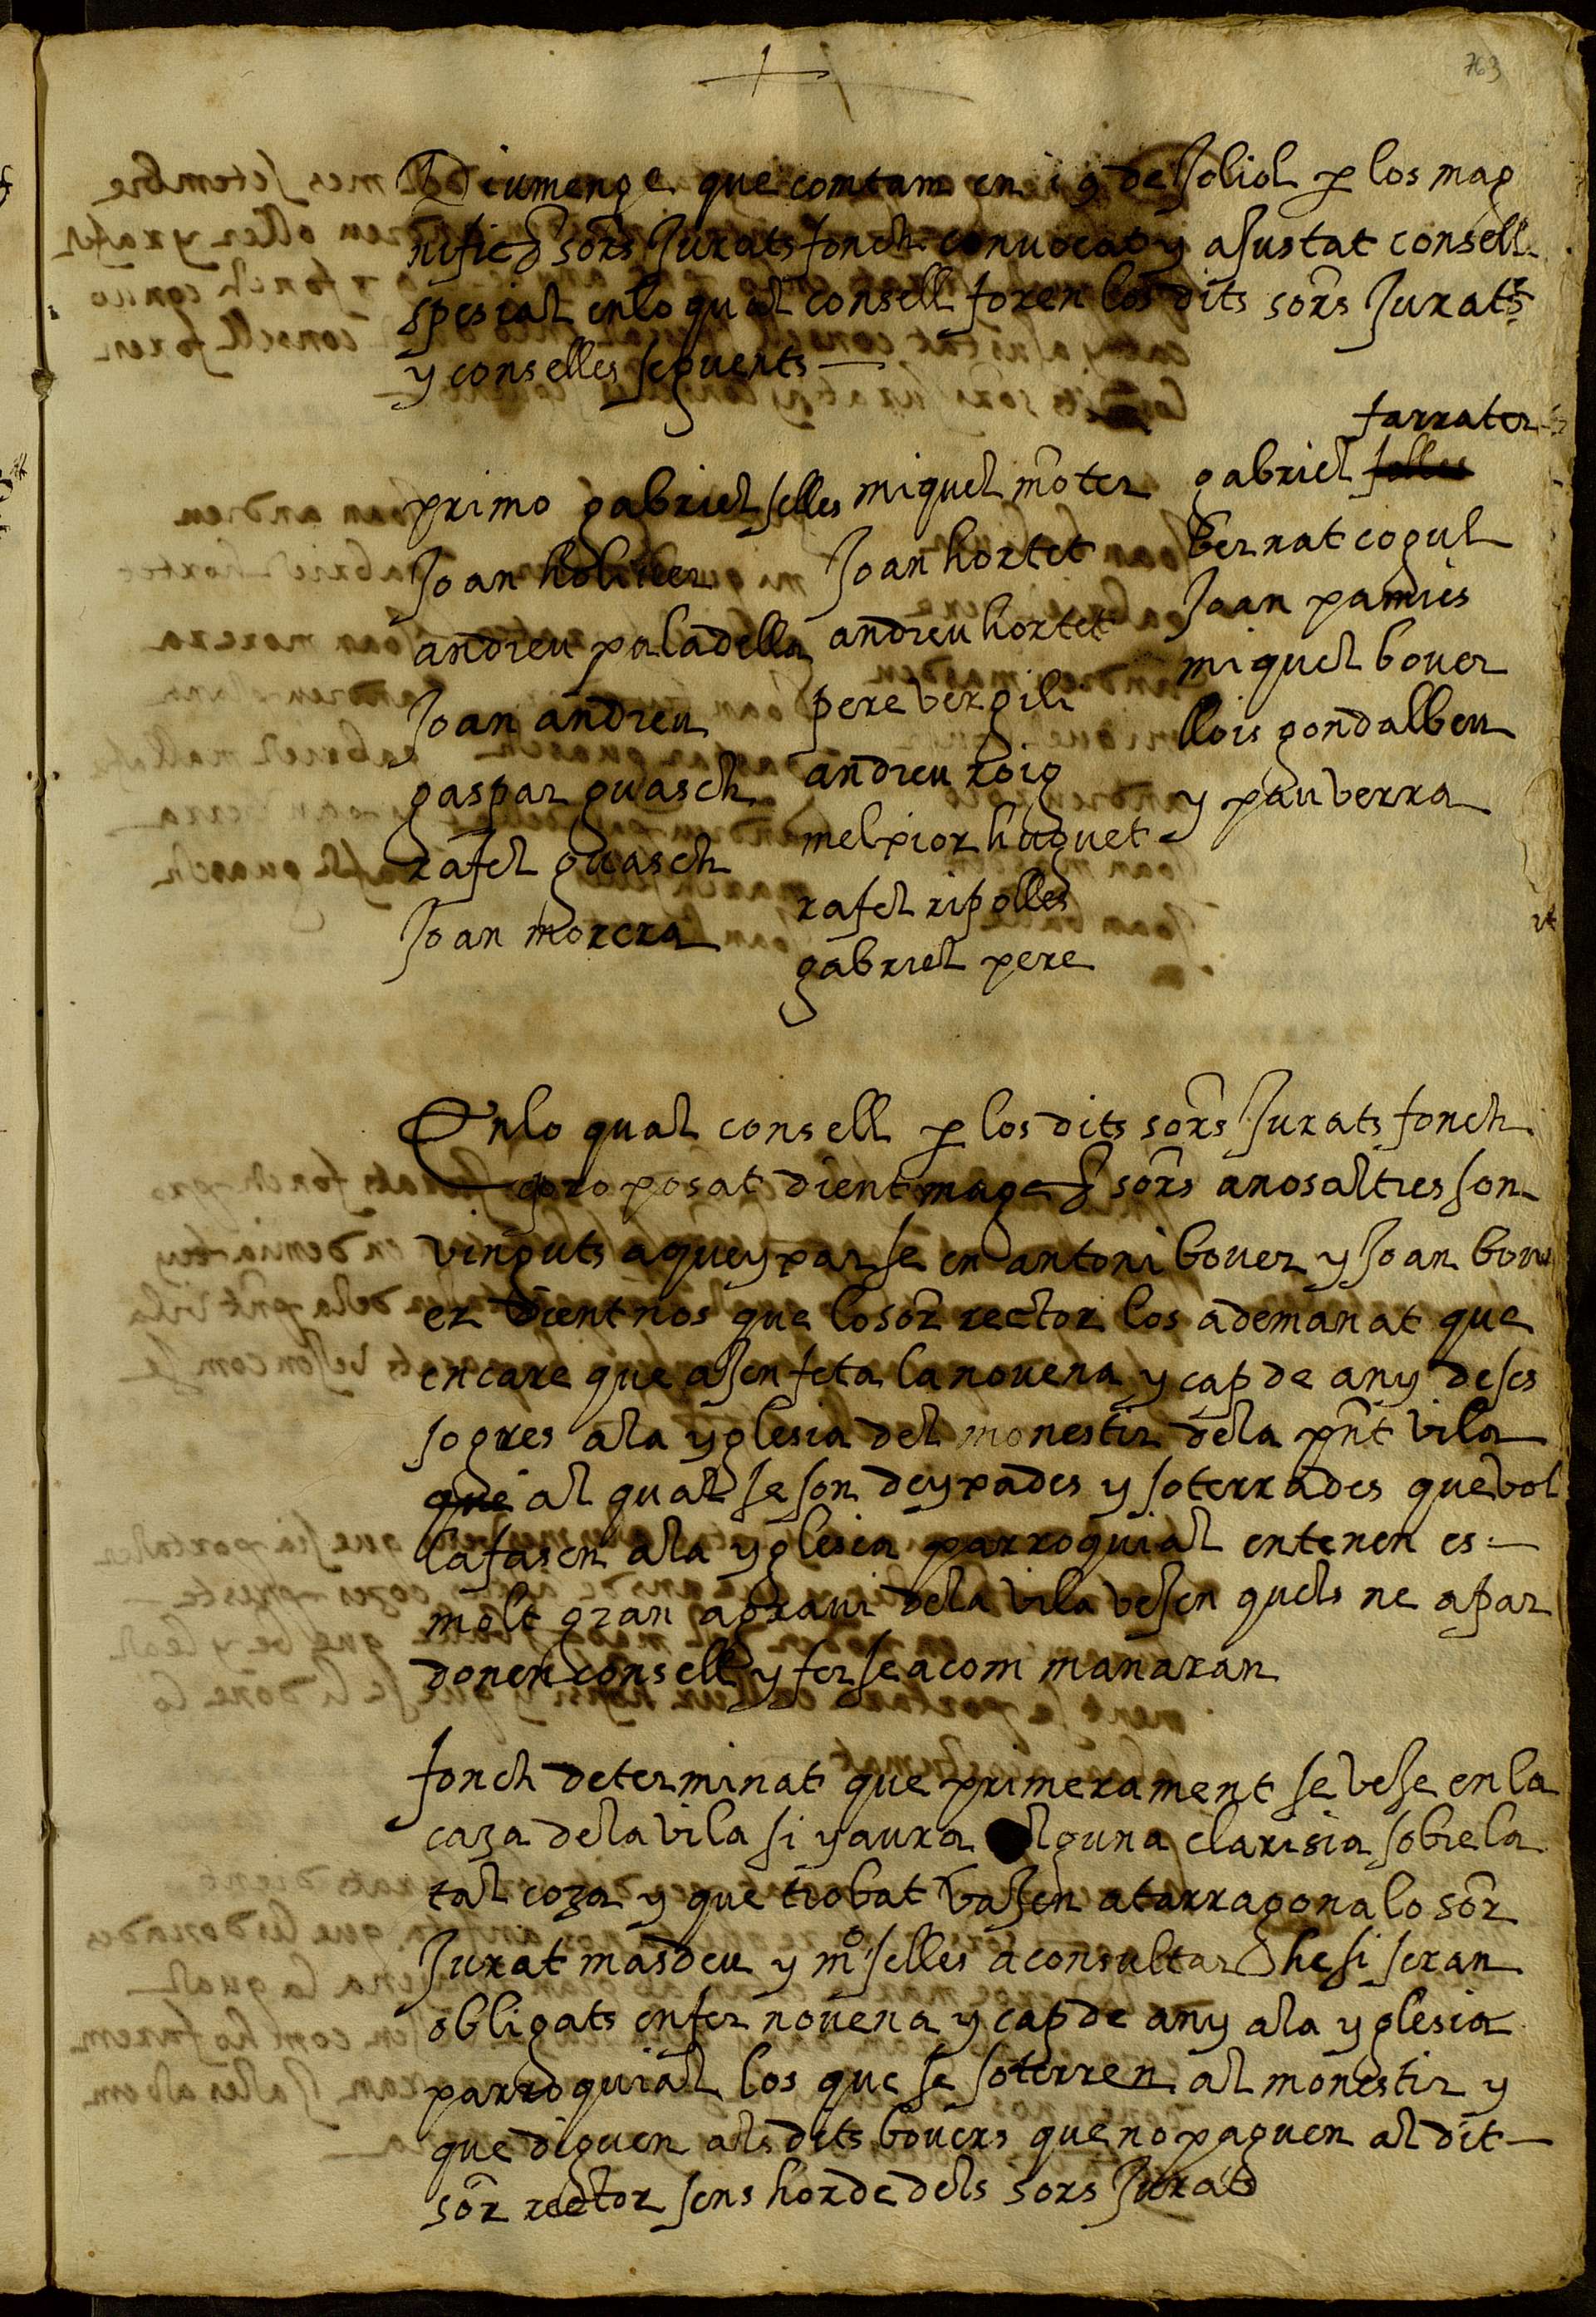 763
Diumenge que comtam en 19 de Joliol p los mag
nifichs sors Jurats fonch convocat y aJustat consell
spesial en lo qual consell foren los dits sors Jurats
y conselles seguents
primo gabriel selles
Joan holiver
andreu paladella
Joan andreu
gaspar guasch
rafel guasch
Joan morera
miquel moter
Joan hortet
andreu hortet
pere vergili
andreu roig
melxior huguet
rafel ripolles
gabriel pere
farrater
gabriel selles
bernat cogul
Joan pamies
miquel bover
llois gondalbeu
y pau verra
En lo qual consell p los dits sors Jurats fonch
proposat dient magchs sors a nosaltres son
vinguts a queyxarse en antoni bover y Joan bov
er dient nos que lo sor rector los a demanat que
encare que aJen feta la novena y cap de any de ses
sogres a la yglesia del monestir de la pnt vila
que al qual se son deyxades y soterrades que vol
la fasen a la yglesia parroquial entenen es
molt gran agravi de la vila veJen quels ne apar
donen consell y ferse a com manaran
fonch determinat que primerament se veJe en la
caza de la vila si y aura alguna clarisia sobre la
tal coza y que trobat vaJen a tarragona lo sor
Jurat masdeu y mo selles a consultar he si seran
obligats en fer novena y cap de any a la yglesia
parroquial los que se soterren al monestir y
que diguen als dits bovers que no paguen al dit
sor rector sens horde dels sors Jurats